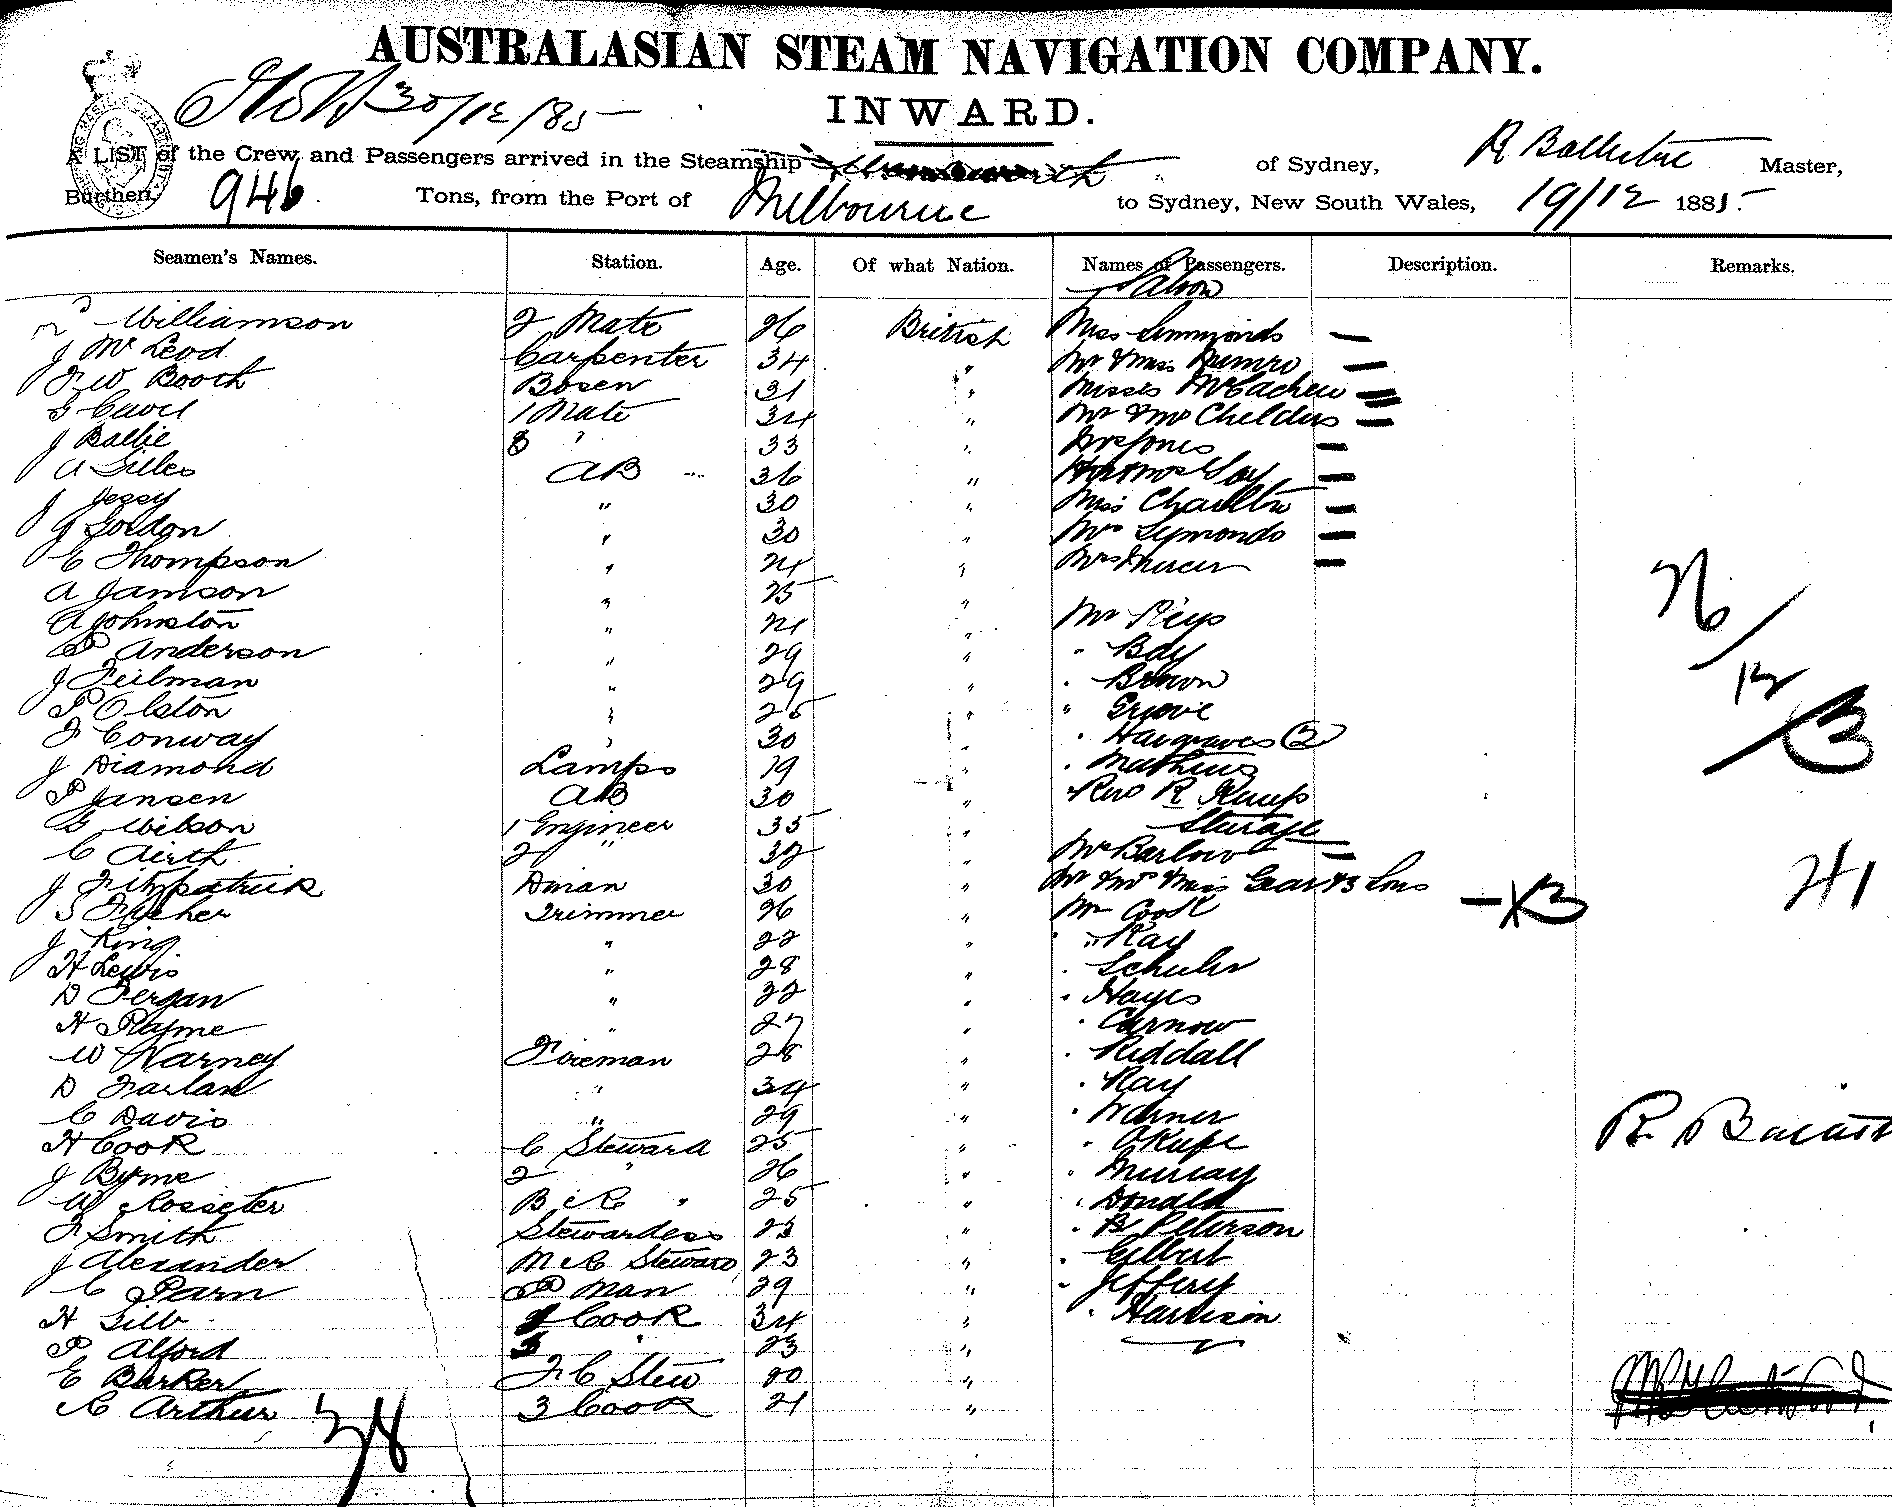 AUSTRALASIAN STEAM NAVIGATION COMPANY.
30/12/85
INWARD.
A LIST of the Crew and Passengers arrived in the Steamship of Sydney, R Master,
Burthen, 946 Tons, from the Port of Melbourne to Sydney, New South Wales, 19/12 1885
Seamen's Names. Station. Age. Of what Nation. Names of Passengers. Description. Remarks.
Saloon
Williamson 2 Mate 26 British Miss Simmonds —
J Mc Leod Carpenter 34 " Mr & Miss Munro —
F W Booth Bosen 31 " Misses McEachern
1 Mate 34 " Mr & Mrs Childers —
J Ballie 3 " 33 " Mrs Jones —
A AB 36 " —
J Jessy " 30 " Miss Charlton —
J Gordon " 30 " Mrs Symonds —
C Thompson " 24 " Mrs —
A Jamson " 25 "
A Johnston " 24 " Mr
P Anderson " 29 " " Bay
J " 29 " " Brown
P Olston " 25 " " Grieve
F Conway " 30 " " Hargraves (2)
J Diamond Lamps 19 " " Mathews
P Jansen AB 30 " Rev R Kemp
G Wilson 1 Engineer 35 " Steerage
C Airth 2 " 32 " Mr Barlow —
J Fitzpatrick Dman 30 " Mr Mrs Miss Gear & 3 Sons
S Fisher Trimmer 26 " Mr Cook
J King " 22 " " Kay
H Lewis " 28 " "
D Fergan " 22 " " Hayes
H Rayme " 27 " " Carnow
W Narney Fireman 28 " " Riddall
D Farlan " 34 " " Kay
C Davis " 29 " " Warner
H Cook C Steward 25 " " OKeefe
J Byrne 2 " 26 " " Murray
W Rosseter B & R " 25 " " Donald
F Smith Stewardess 23 " " B Peterson
J Alexander M R Steward 23 " " Gilbert
C Parn P Man 29 " " Jeffery
H Cook 34 " " Harrison
P Alford " 23 "
E Barker F C Stew 20 "
R Arthur 3 Cook 21 "
38
41